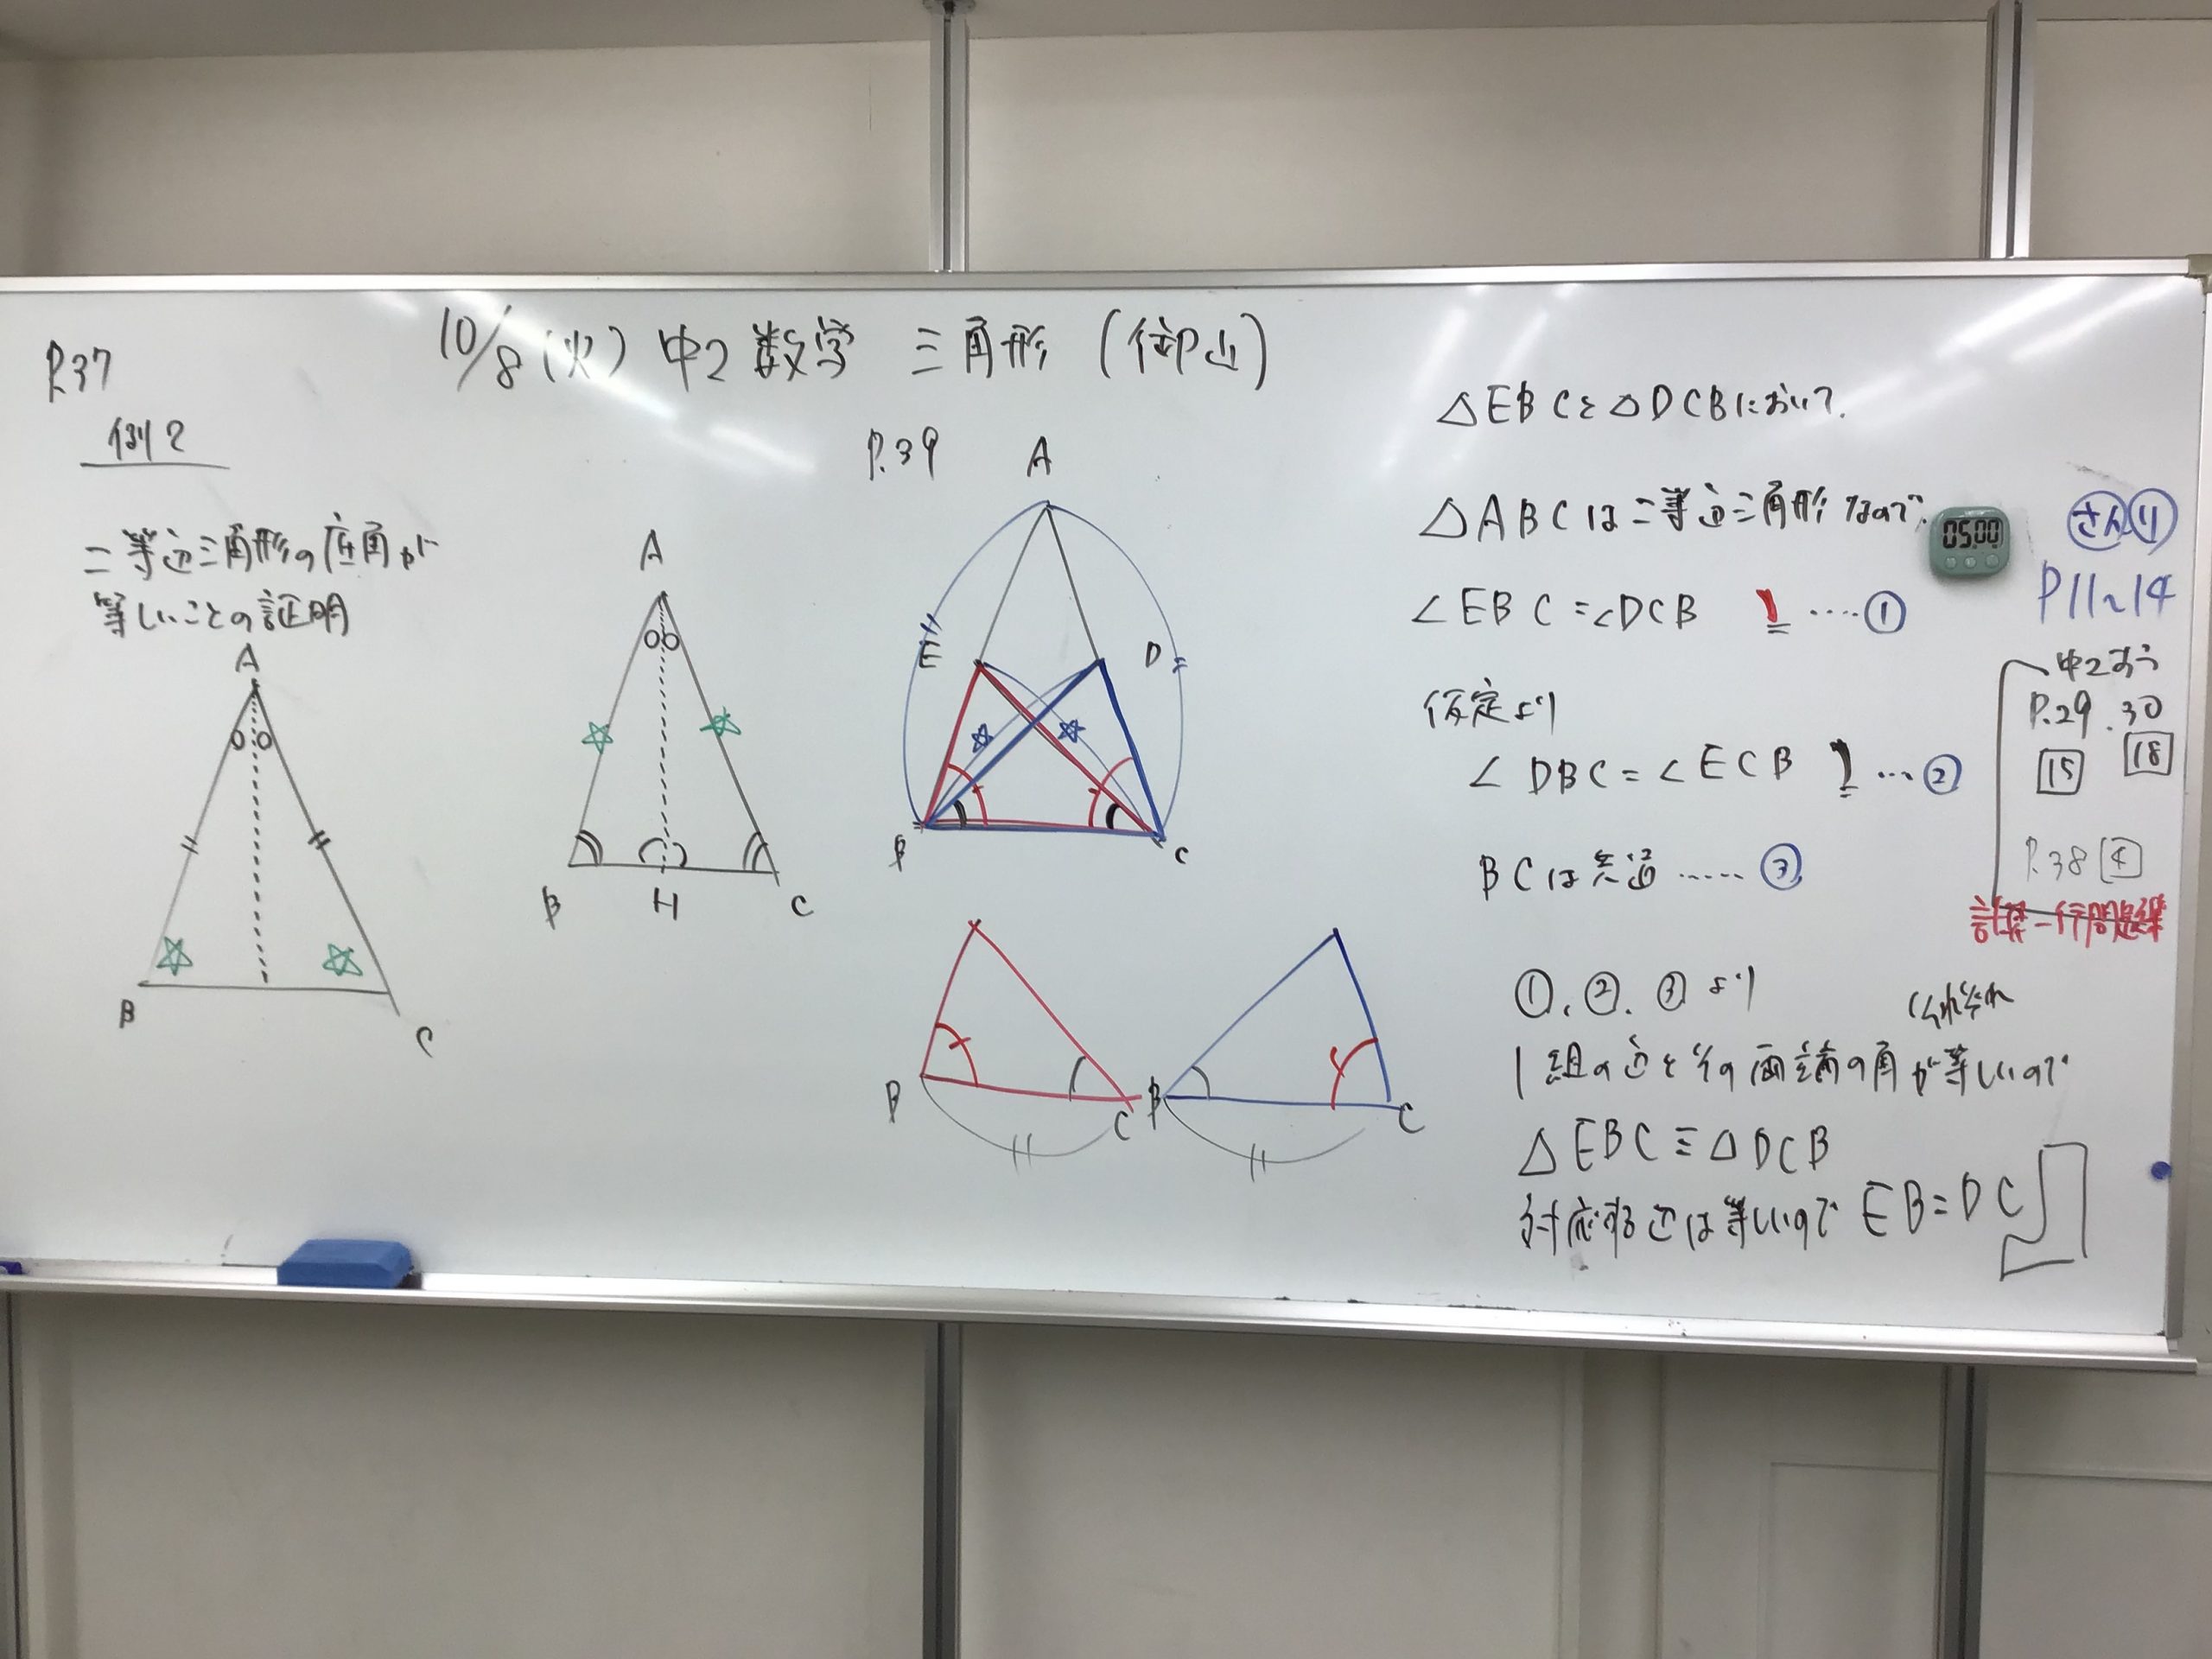 10/8(火) 中2 数学 三角形 (御山)
P.37
例2
二等辺三角形の底角が
等しいことの証明
A
B
C
A
B
H
C
P.39
A
E
D
B
C
B
C
B
C
△EBCと△DCBにおいて.
△ABCは二等辺三角形なので.
∠EBC=∠DCB ……①
仮定より
∠DBC=∠ECB …②
BCは共通 ……③
①, ②, ③より
それぞれ
1組の辺とその両端の角が等しいので
△EBC≡△DCB
対応する辺は等しいので EB=DC
05:00
さん り
P11~14
中2
P.29.30
15 18
P.38 4
計算一行問題集